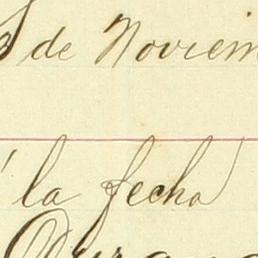 de Noviem
la fecha